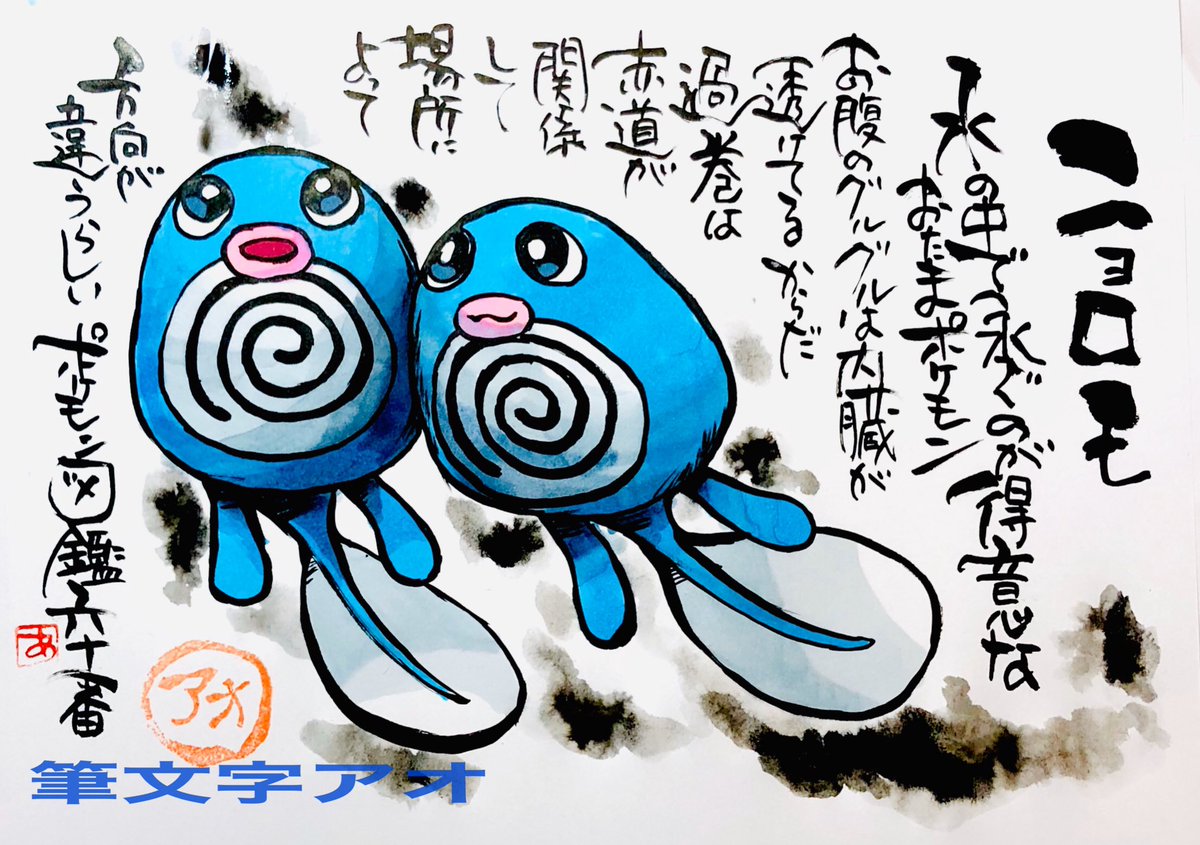 ニョロモ
水の中で泳ぐのが得意な
おたまポケモン
お腹のグルグルは内臓が
透けてるからだ
渦巻は
赤道が
関係
して
場所に
よって
方向が
違うらしい
ポケモン図鑑六十番
あ
アオ
筆文字アオ